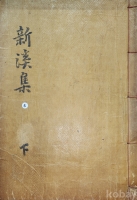 新溪集
下